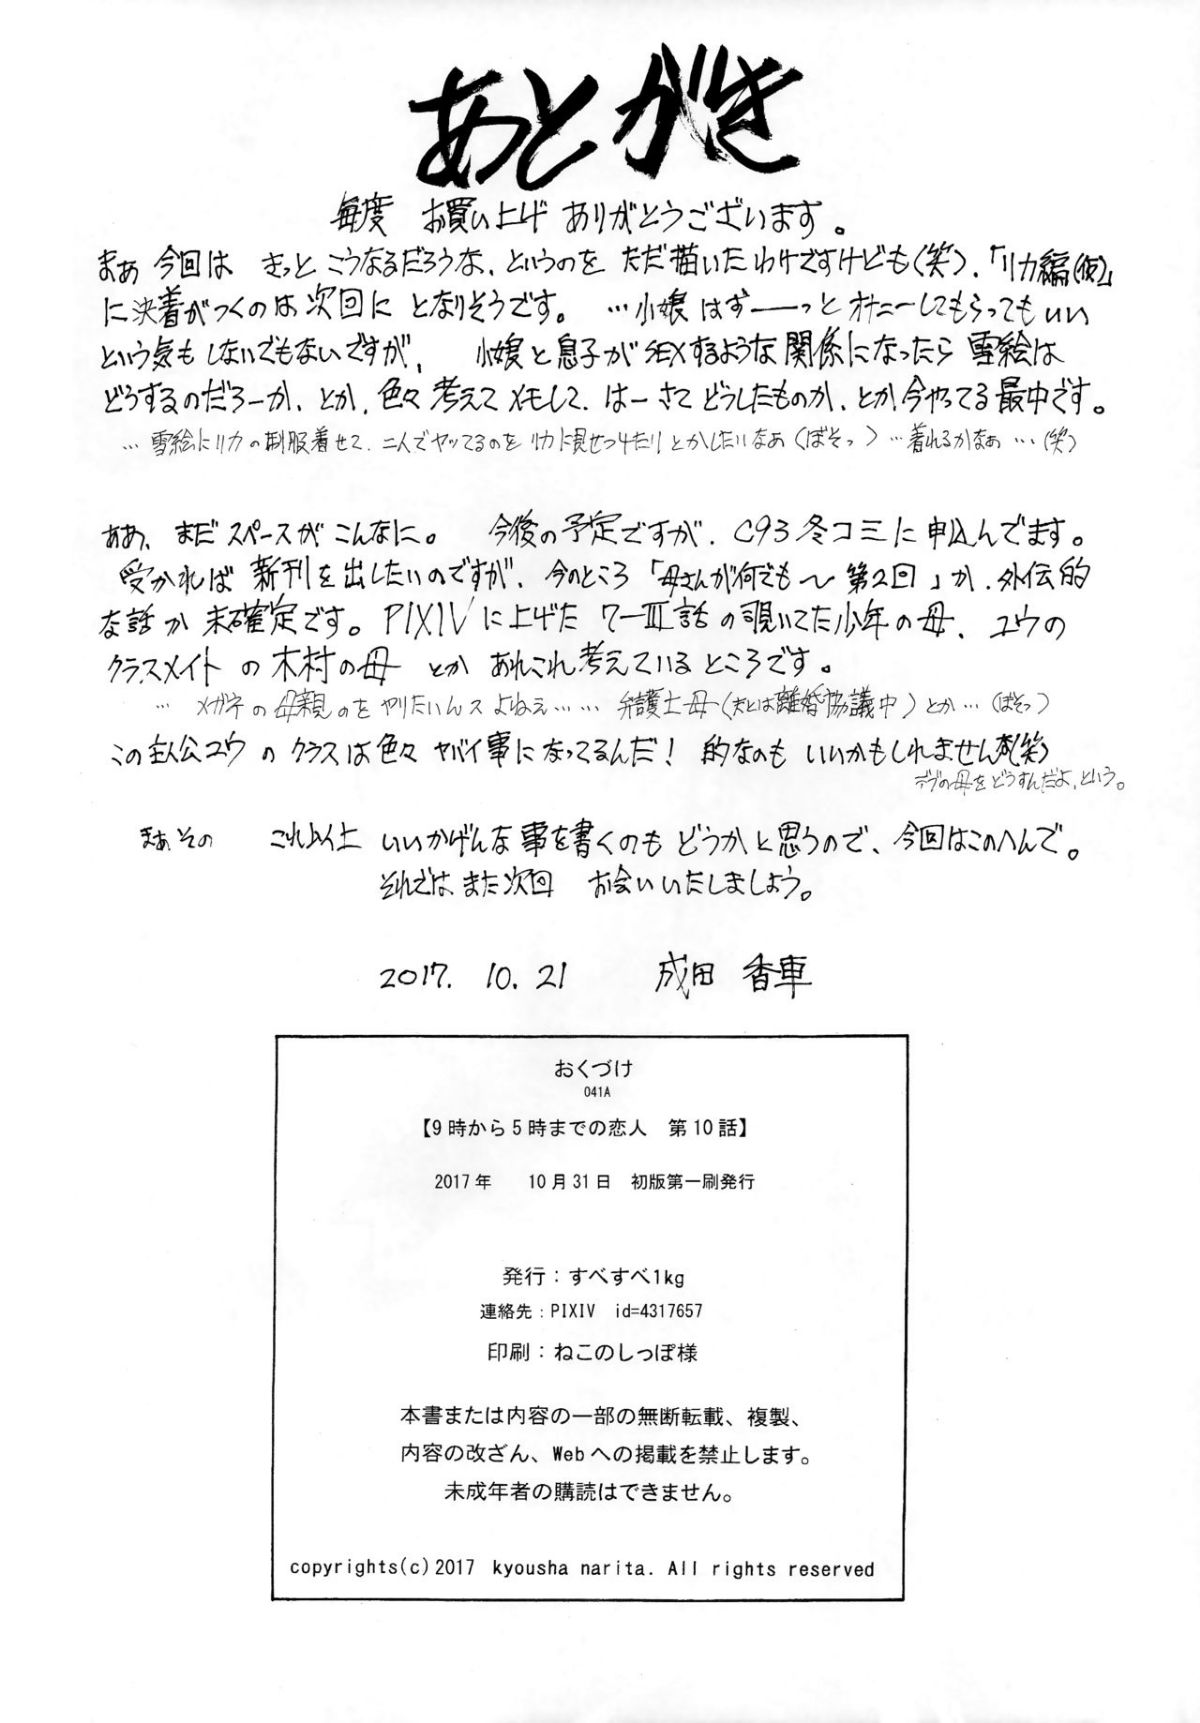 あとがき
毎度 お買い上げ ありがとうございます。
まぁ 今回は きっと こうなるだろうな、というのを ただ描いたわけですけども(笑)、「リカ編(仮)」
に決着がつくのは次回に となりそうです。 …小娘はずーーっと オナニーしてもらってもいい
という気も しないでもないですが、 小娘と息子がSEXするような関係になったら 雪絵は
どうするのだろーか、とか、色々 考えて メモして、はーさて どうしたものか、とか今やってる最中です。
…雪絵にリカの制服着せて、二人でヤッてるのを リカに見せつけたり とかしたいなぁ(ぼそっ) …着れるかなぁ …(笑)
ああ、まだスペースが こんなに。 今後の予定ですが、C93冬コミに申込んでます。
受かれば 新刊を出したいのですが、今のところ「母さんが何でも〜 第2回」か、外伝的
な話か 未確定です。PIXIVに上げた 7-III話の覗いてた少年の母、ユウの
クラスメイトの木村の母 とか あれこれ考えているところです。
… メガネの母親のを やりたいんスよねぇ…… 弁護士母(夫とは離婚協議中)とか…(ぼそっ)
この主人公ユウのクラスは色々 ヤバイ事になってるんだ! 的なのも いいかもしれませんな(笑)
デブの母をどうすんだよ、という。
まぁその これ以上 いいかげんな事を書くのも どうかと思うので、今回はこのへんで。
それではまた次回 お会いいたしましょう。
2017. 10. 21 成田 香車
おくづけ
041A
【9時から5時までの恋人 第10話】
2017年 10月31日 初版第一刷発行
発行：すべすべ1kg
連絡先：PIXIV id=4317657
印刷：ねこのしっぽ様
本書または内容の一部の無断転載、複製、
内容の改ざん、Webへの掲載を禁止します。
未成年者の購読はできません。
copyrights(c)2017 kyousha narita. All rights reserved